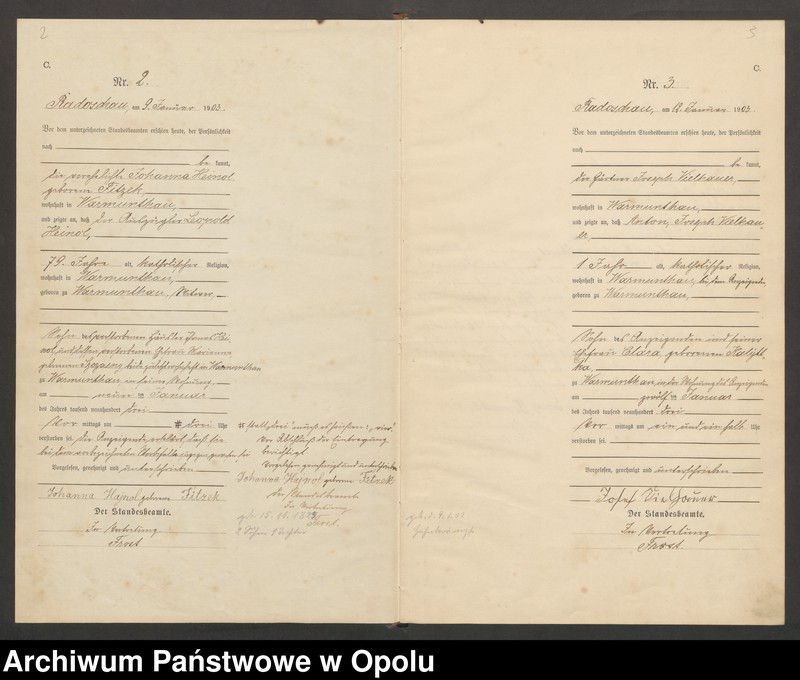 2
C.
Nr. 2.
Radoschau, am 9. Januar 1903.
Vor dem unterzeichneten Standesbeamten erschien heute, der Persönlichkeit
nach
be kannt,
die verehelichte Johanna Heinol
geborene Fitzek
wohnhaft in Warmunthau,
und zeigte an, daß der Auszügler Leopold
Heinol,
79 Jahre alt, katholischer Religion,
wohnhaft in Warmunthau,
geboren zu Warmunthau,
Sohn des verstorbenen Häusler
verstorbenen Ehefrau Marianna
geborenen
zu Warmunthau, in seiner Wohnung,
am neunten Januar
des Jahres tausend neunhundert drei
Vor mittags um drei Uhr
verstorben sei. Die Anzeigende erklärt, daß sie
bei dem Sterbefalle zugegen gewesen sei
Vorgelesen, genehmigt und unterschrieben
Johanna Hajnol geborene Fitzek
Der Standesbeamte.
In Vertretung
Frost
statt „drei" muß es heißen: „vier"
Vor Abschluß der Eintragung
berichtigt
Vorgelesen genehmigt und unterschrieben
Johanna Hajnol geborene Fitzek
Der Standesbeamte
In Vertretung
Frost.
3
C.
Nr. 3.
Radoschau, am 12. Januar 1903.
Vor dem unterzeichneten Standesbeamten erschien heute, der Persönlichkeit
nach
be kannt,
der Gärtner Joseph
wohnhaft in Warmunthau,
und zeigte an, daß Anton, Joseph
1 Jahr alt, katholischer Religion,
wohnhaft in Warmunthau, bei dem Anzeigenden,
geboren zu Warmunthau,
Sohn des Anzeigenden und seiner
Ehefrau Clara geborenen
zu Warmunthau, in der Wohnung des Anzeigenden
am zwölften Januar
des Jahres tausend neunhundert drei
Vor mittags um ein und ein halb Uhr
verstorben sei.
Vorgelesen, genehmigt und unterschrieben
Josef
Der Standesbeamte.
In Vertretung
Frost.
Archiwum Państwowe w Opolu